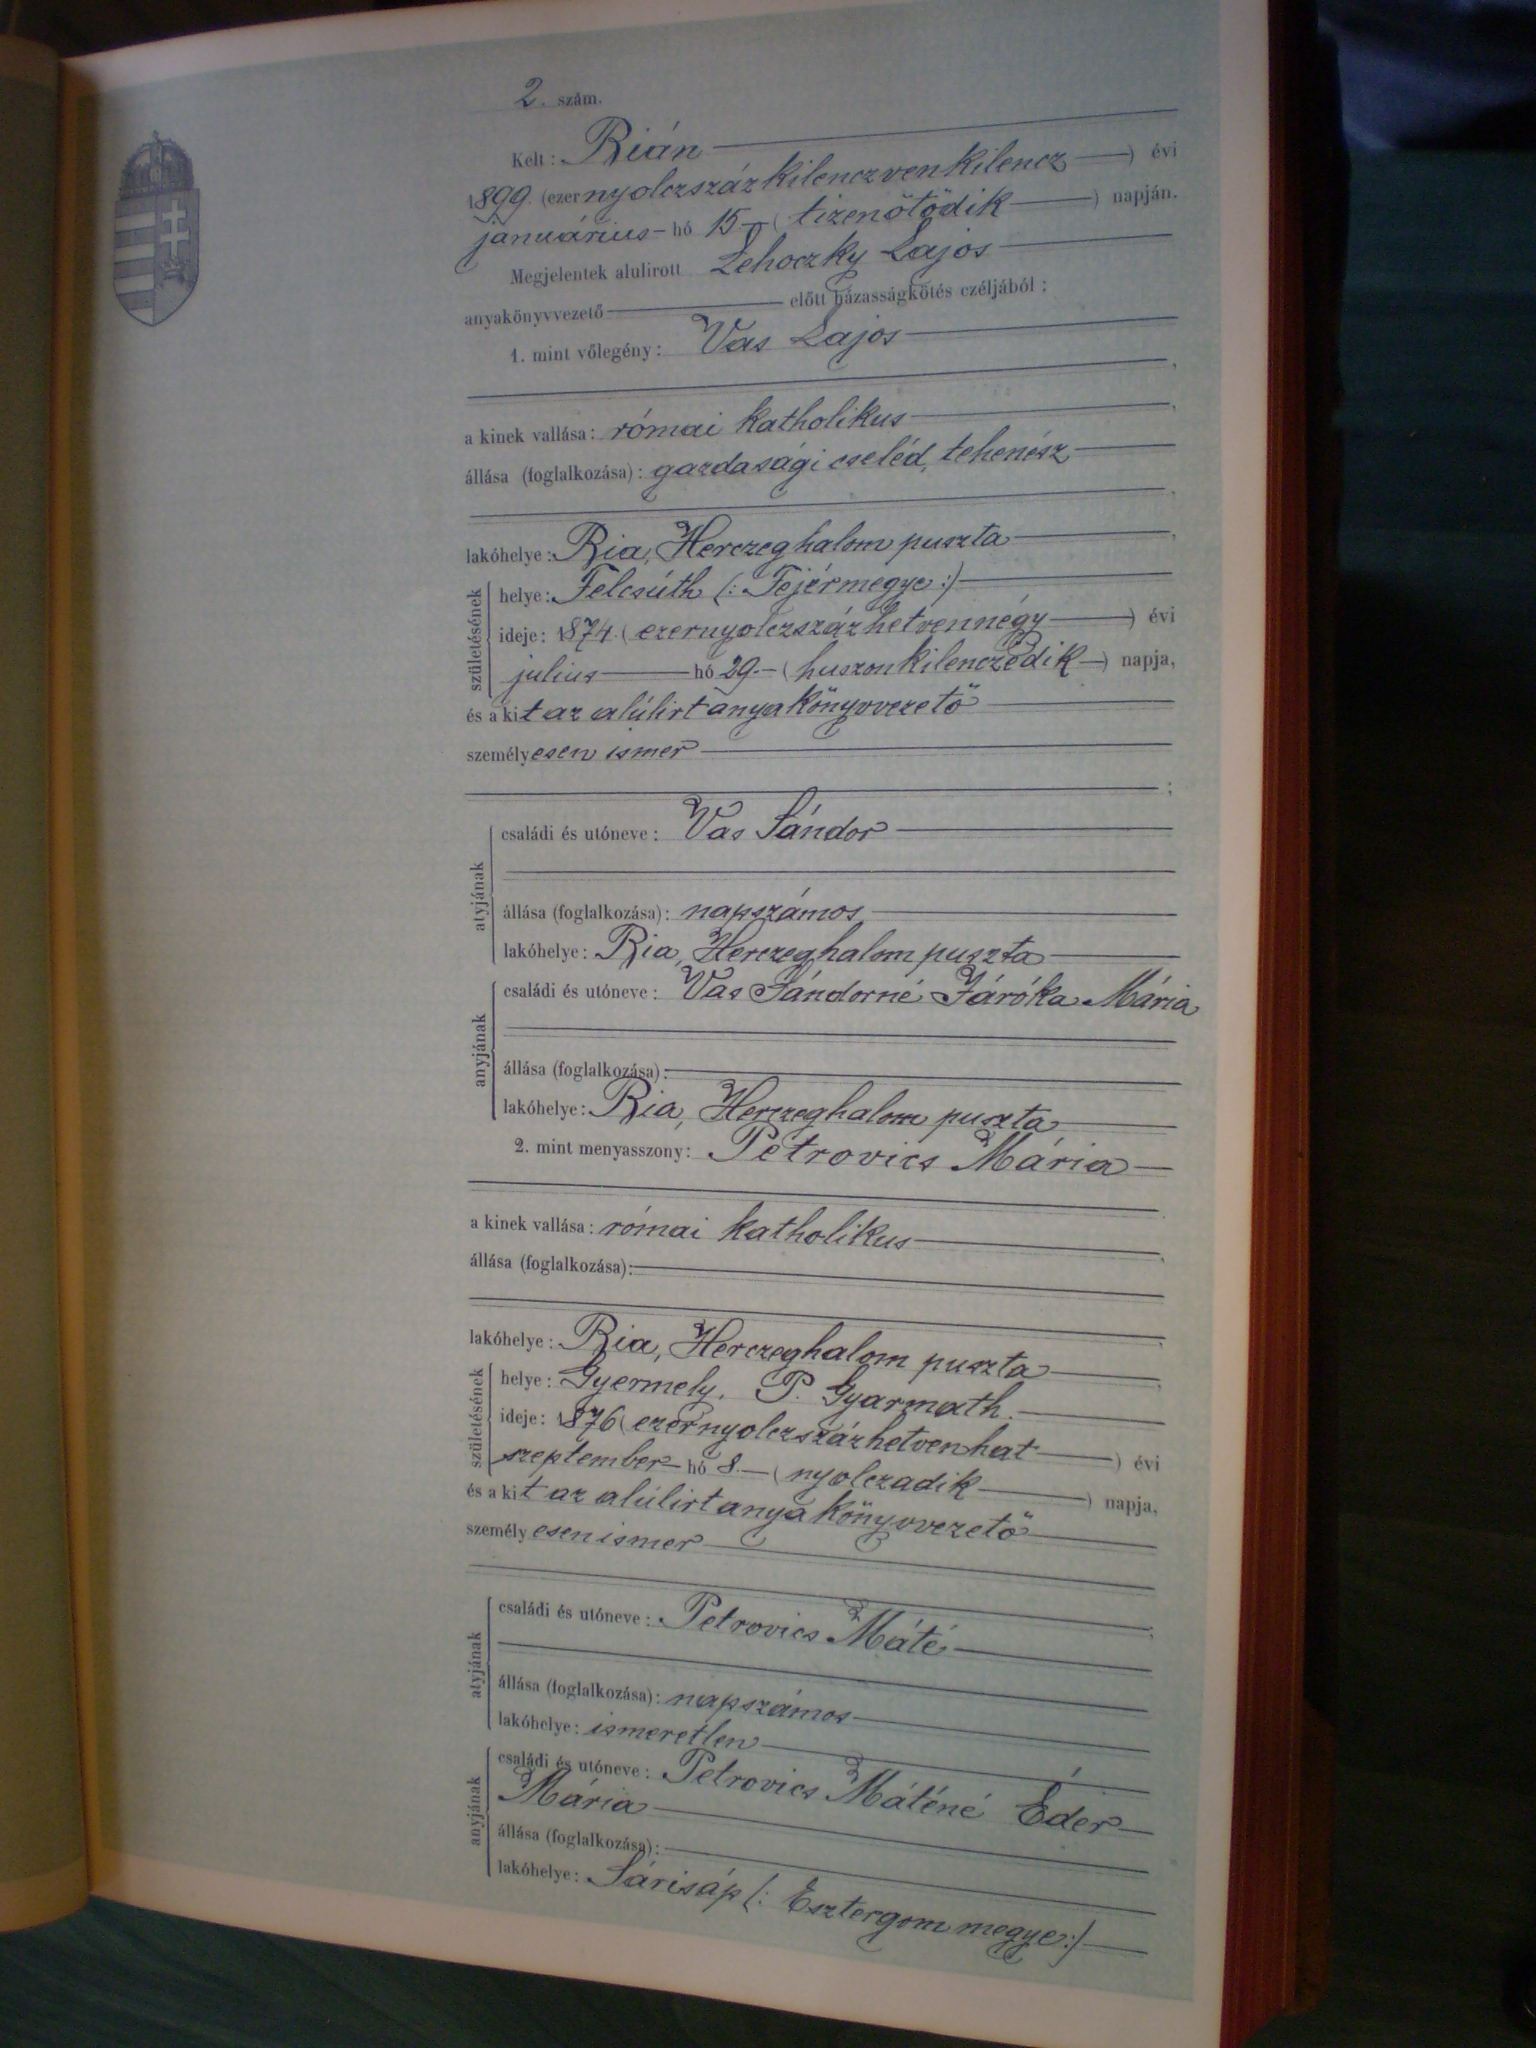 2. szám.
Kelt: Bián
1899. (ezernyolczszázkilenczvenkilencz) évi
január​ius hó 15 (tizenötödik) napján.
Megjelentek alulirott Lehoczky Lajos
anyakönyvvezető előtt házasságkötés czéljából:
1. mint vőlegény: Vas Lajos
a kinek vallása: római katholikus,
állása (foglalkozása): gazdasági cseléd, tehenész,
lakóhelye: Bia, Herczeghalom puszta,
születésének
helye: Felcsúth (: Fejérmegye :)
ideje: 1874. (ezernyolczszázhetvennégy) évi
julius hó 29. (huszonkilenczedik) napja,
és a kit az alúlirt anyakönyvvezető
személyesen ismer
;
atyjának
családi és utóneve: Vas Sándor
állása (foglalkozása): napszámos
lakóhelye: Bia, Herczeghalom puszta
anyjának
családi és utóneve: Vas Sándorné Járóka Mária
állása (foglalkozása):
lakóhelye: Bia, Herczeghalom puszta
2. mint menyasszony: Petrovics Mária
a kinek vallása: római katholikus,
állása (foglalkozása):
lakóhelye: Bia, Herczeghalom puszta,
születésének
helye: Gyermely, P. Gyarmath.
ideje: 1876 (ezernyolczszázhetvenhat) évi
szeptember hó 8. (nyolczadik) napja,
és a kit az alúlirt anyakönyvvezető
személyesen ismer
;
atyjának
családi és utóneve: Petrovics Máté
állása (foglalkozása): napszámos
lakóhelye: ismeretlen
anyjának
családi és utóneve: Petrovics Máténé Éder
Mária
állása (foglalkozása):
lakóhelye: Sárisáp (: Esztergom megye :)